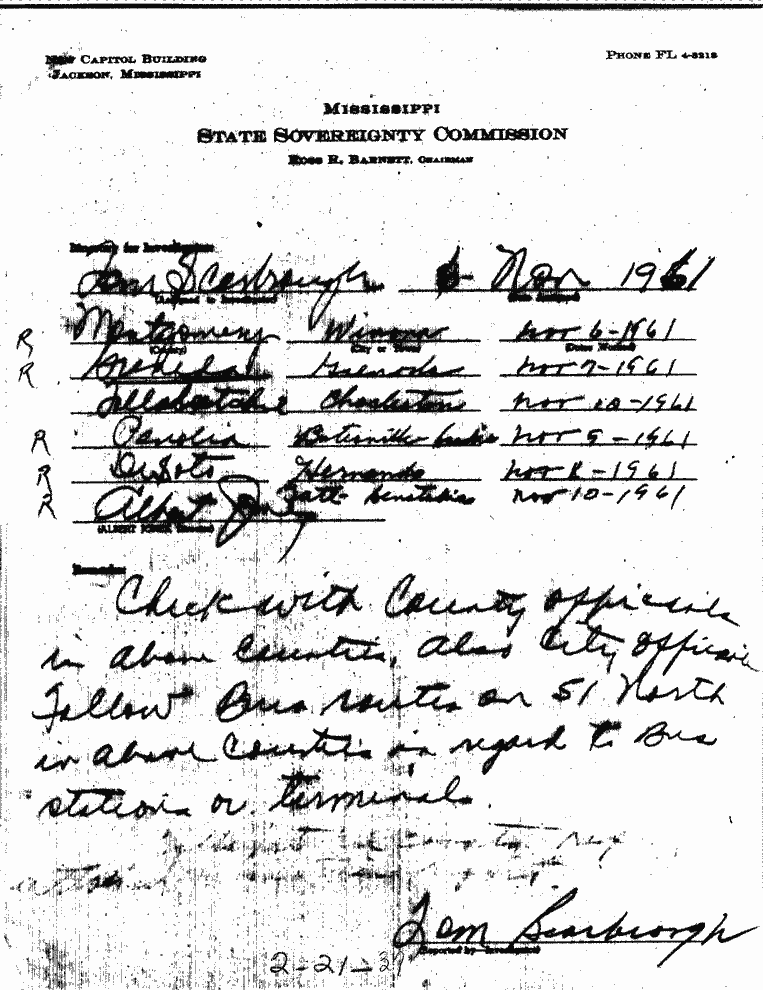 New Capitol Building
Jackson, Mississippi
Phone FL 4-3218
Mississippi
State Sovereignty Commission
Ross R. Barnett, Chairman
Request for Investigation
Tom Scarbrough 6 Nov 1961
(Assigned to Investigate) (Date Assigned)
R Montgomery Winona Nov 6-1961
(County) (City or Town) (Dates Worked)
R Grenada Grenada Nov 7-1961
Tallahatchie Charleston Nov 10-1961
R Panolia Batesville Nov 9-1961
R DeSoto Hernando Nov 8-1961
R Albert Jones Nov 10-1961
(ALBERT JONES, Director)
Remarks:
Check with County officials
in above Counties, also City officials
Follow Bus routes on 51 North
in above Counties in regard to Bus
stations or terminals.
Tom Scarbrough
(Reported by - Investigator)
2-21-